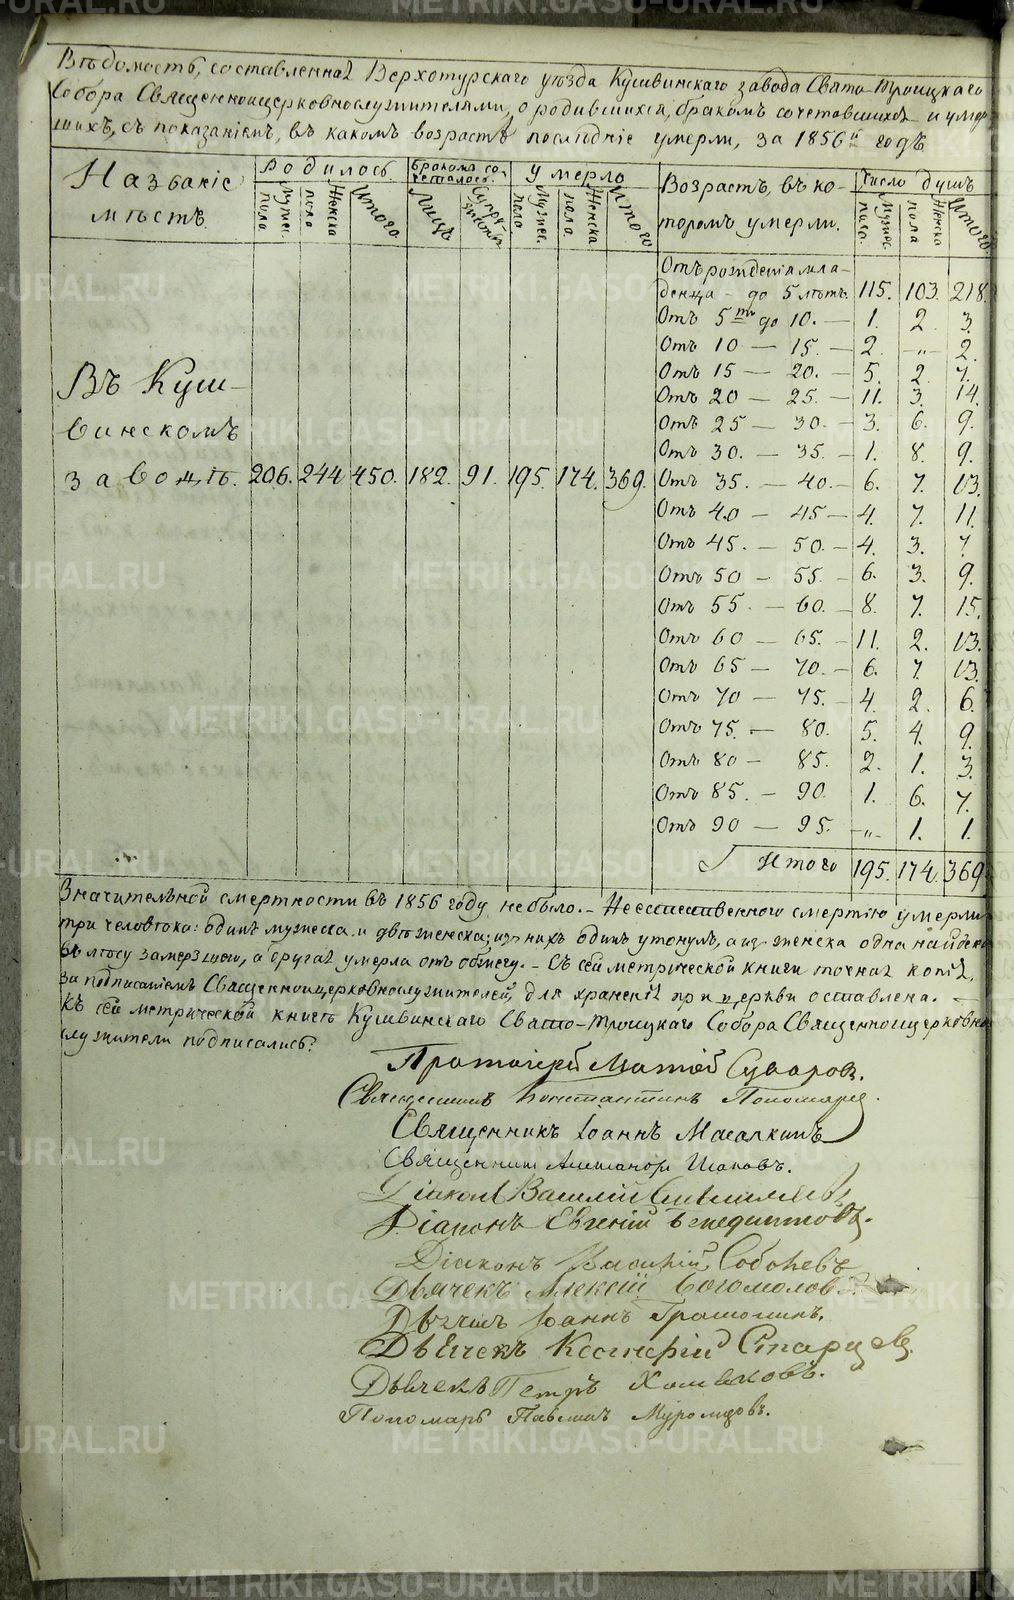 Вѣдомость, составленная Верхотурскаго уѣзда Кушвинскаго завода Свято-Троицкаго
Собора Священноицерковнослужителями, о родившихся, бракомъ сочетавшихся и умер-
шихъ, съ показаніемъ, въ какомъ возрастѣ послѣдніе умерли, за 1856й годъ
Названіе мѣстъ.
Родилось.
Мужес. пола
Женска пола
Итого
Бракомъ со-
четалось.
Лицъ
Супру-
жествъ
Умерло
Мужес. пола
Женска пола.
Итого
Возрастъ, въ ко-
торомъ умерли.
Число душъ
Мужес. пола.
Женска пола
Итого.
Въ Куш-
винскомъ
заводѣ. 206. 244 450. 182. 91. 195. 174. 369.
Отъ рожденія мла-
денца - до 5 лѣтъ. 115. 103. 218.
Отъ 5ти до 10. — 1. 2. 3.
Отъ 10 — 15. — 2. —„— 2.
Отъ 15 — 20. — 5. 2. 7.
Отъ 20 — 25. — 11. 3. 14.
Отъ 25 — 30. — 3. 6. 9.
Отъ 30. — 35. — 1. 8. 9.
Отъ 35. — 40. — 6. 7. 13.
Отъ 40 — 45 — 4. 7. 11.
Отъ 45. — 50. — 4. 3. 7.
Отъ 50 — 55. — 6. 3. 9.
Отъ 55. — 60. — 8. 7. 15.
Отъ 60 — 65. — 11. 2. 13.
Отъ 65 — 70. — 6. 7. 13.
Отъ 70 — 75. — 4. 2. 6.
Отъ 75. — 80. 5. 4. 9.
Отъ 80 — 85. 2. 1. 3.
Отъ 85. — 90. 1. 6. 7.
Отъ 90 — 95. —„— 1. 1.
Итого 195. 174. 369.
Значительной смертности въ 1856 году не было. — Неестественною смертію умерли
три человѣка: одинъ мужеска и двѣ женска; изъ нихъ одинъ утонулъ, а из женска одна найдена
въ лѣсу замерзшою, а другая умерла отъ обжегу. — Съ сей метрической книги точная копія,
за подписаніемъ Священноицерковнослужителей, для храненія при церкви оставлена. —
Къ сей метрической книгѣ Кушвинскаго Свято-Троицкаго Собора Священноицерковно-
служители подписались:
Протоіерей Матѳій Суворовъ.
Священникъ Константинъ Пономаревъ.
Священникъ Іоаннъ Масалкинъ
Священникъ Александръ Исаковъ.
Діаконъ Василій
Діаконъ Евгеній Бенедиктовъ.
Діаконъ Василій Соболевъ
Дьячекъ Алексій Богомоловъ.
Дьячекъ Іоаннъ
Дьячекъ Старцевъ.
Дьячекъ Петръ Хомяковъ.
Пономарь Павелъ Муромцовъ.
METRIKI.GASO-URAL.RU